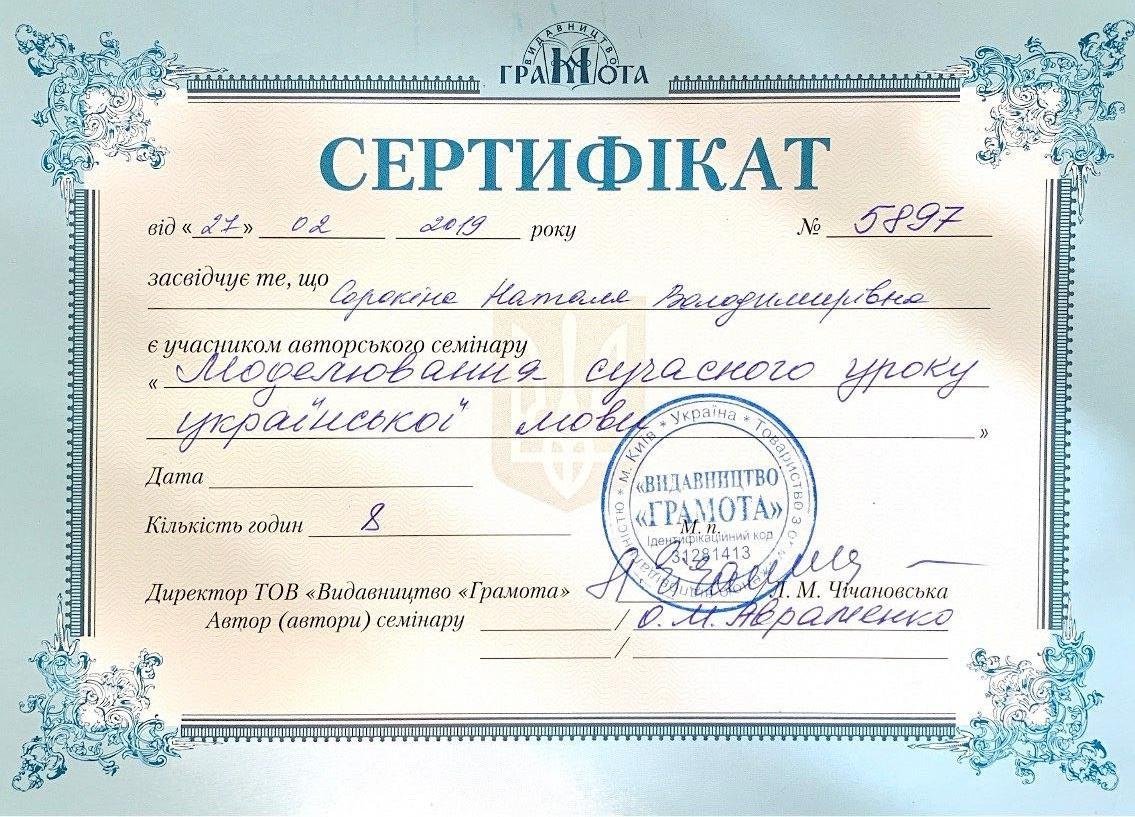 ВИДАВНИЦТВО
ГРАМОТА
СЕРТИФІКАТ
від « 27 » 02 2019 року № 5897
засвідчує те, що
Сорокіна Наталя Володимирівна
є учасником авторського семінару
« Моделювання сучасного уроку
української мови »
Дата
Кількість годин 8
М. п.
* м. Київ * Україна * Товариство з
«ВИДАВНИЦТВО
«ГРАМОТА»
Ідентифікаційний код
31281413
Директор ТОВ «Видавництво «Грамота» Л. М. Чічановська
Автор (автори) семінару / О. М. Авраменко
/